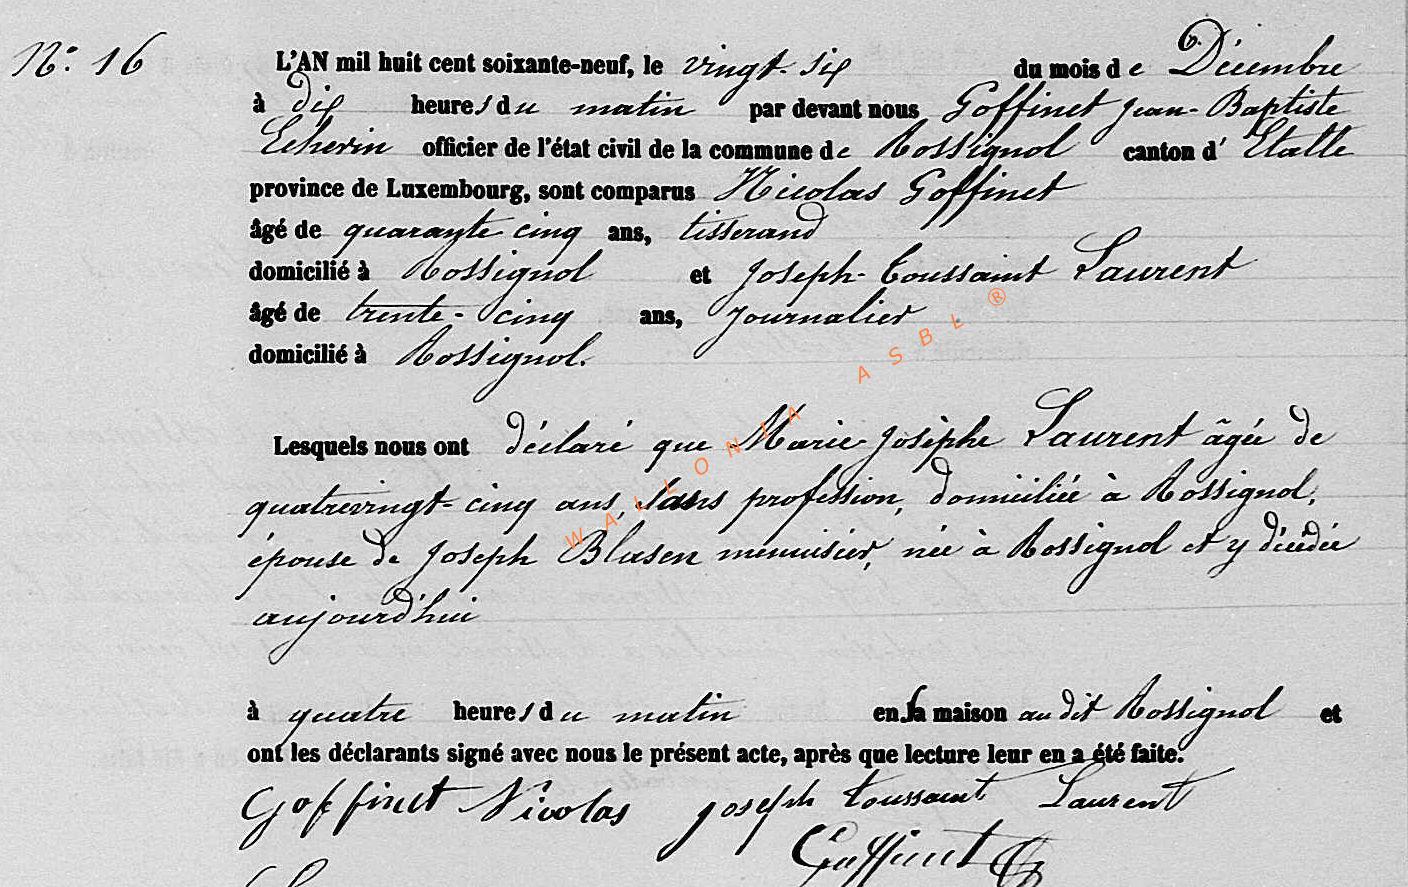 N.º 16
L'AN mil huit cent soixante-neuf, le vingt-six du mois de Décembre
à dix heures du matin par devant nous Goffinet Jean-Baptiste
officier de l'état civil de la commune de Rossignol canton d'Etalle
province de Luxembourg, sont comparus Nicolas Goffinet
âgé de quarante cinq ans, tisserand
domicilié à Rossignol et Joseph-Toussaint Laurent
âgé de trente-cinq ans, journalier
domicilié à Rossignol.
Lesquels nous ont déclaré que Marie-Josèphe Laurent âgée de
quatrevingt-cinq ans, sans profession, domiciliée à Rossignol,
épouse de Joseph Blasen menuisier, née à Rossignol et y décédée
aujourd'hui
à quatre heures du matin en sa maison au dit Rossignol et
ont les déclarants signé avec nous le présent acte, après que lecture leur en a été faite.
Goffinet Nicolas Joseph toussaint Laurent
Goffinet
WALLONIA ASBL ®